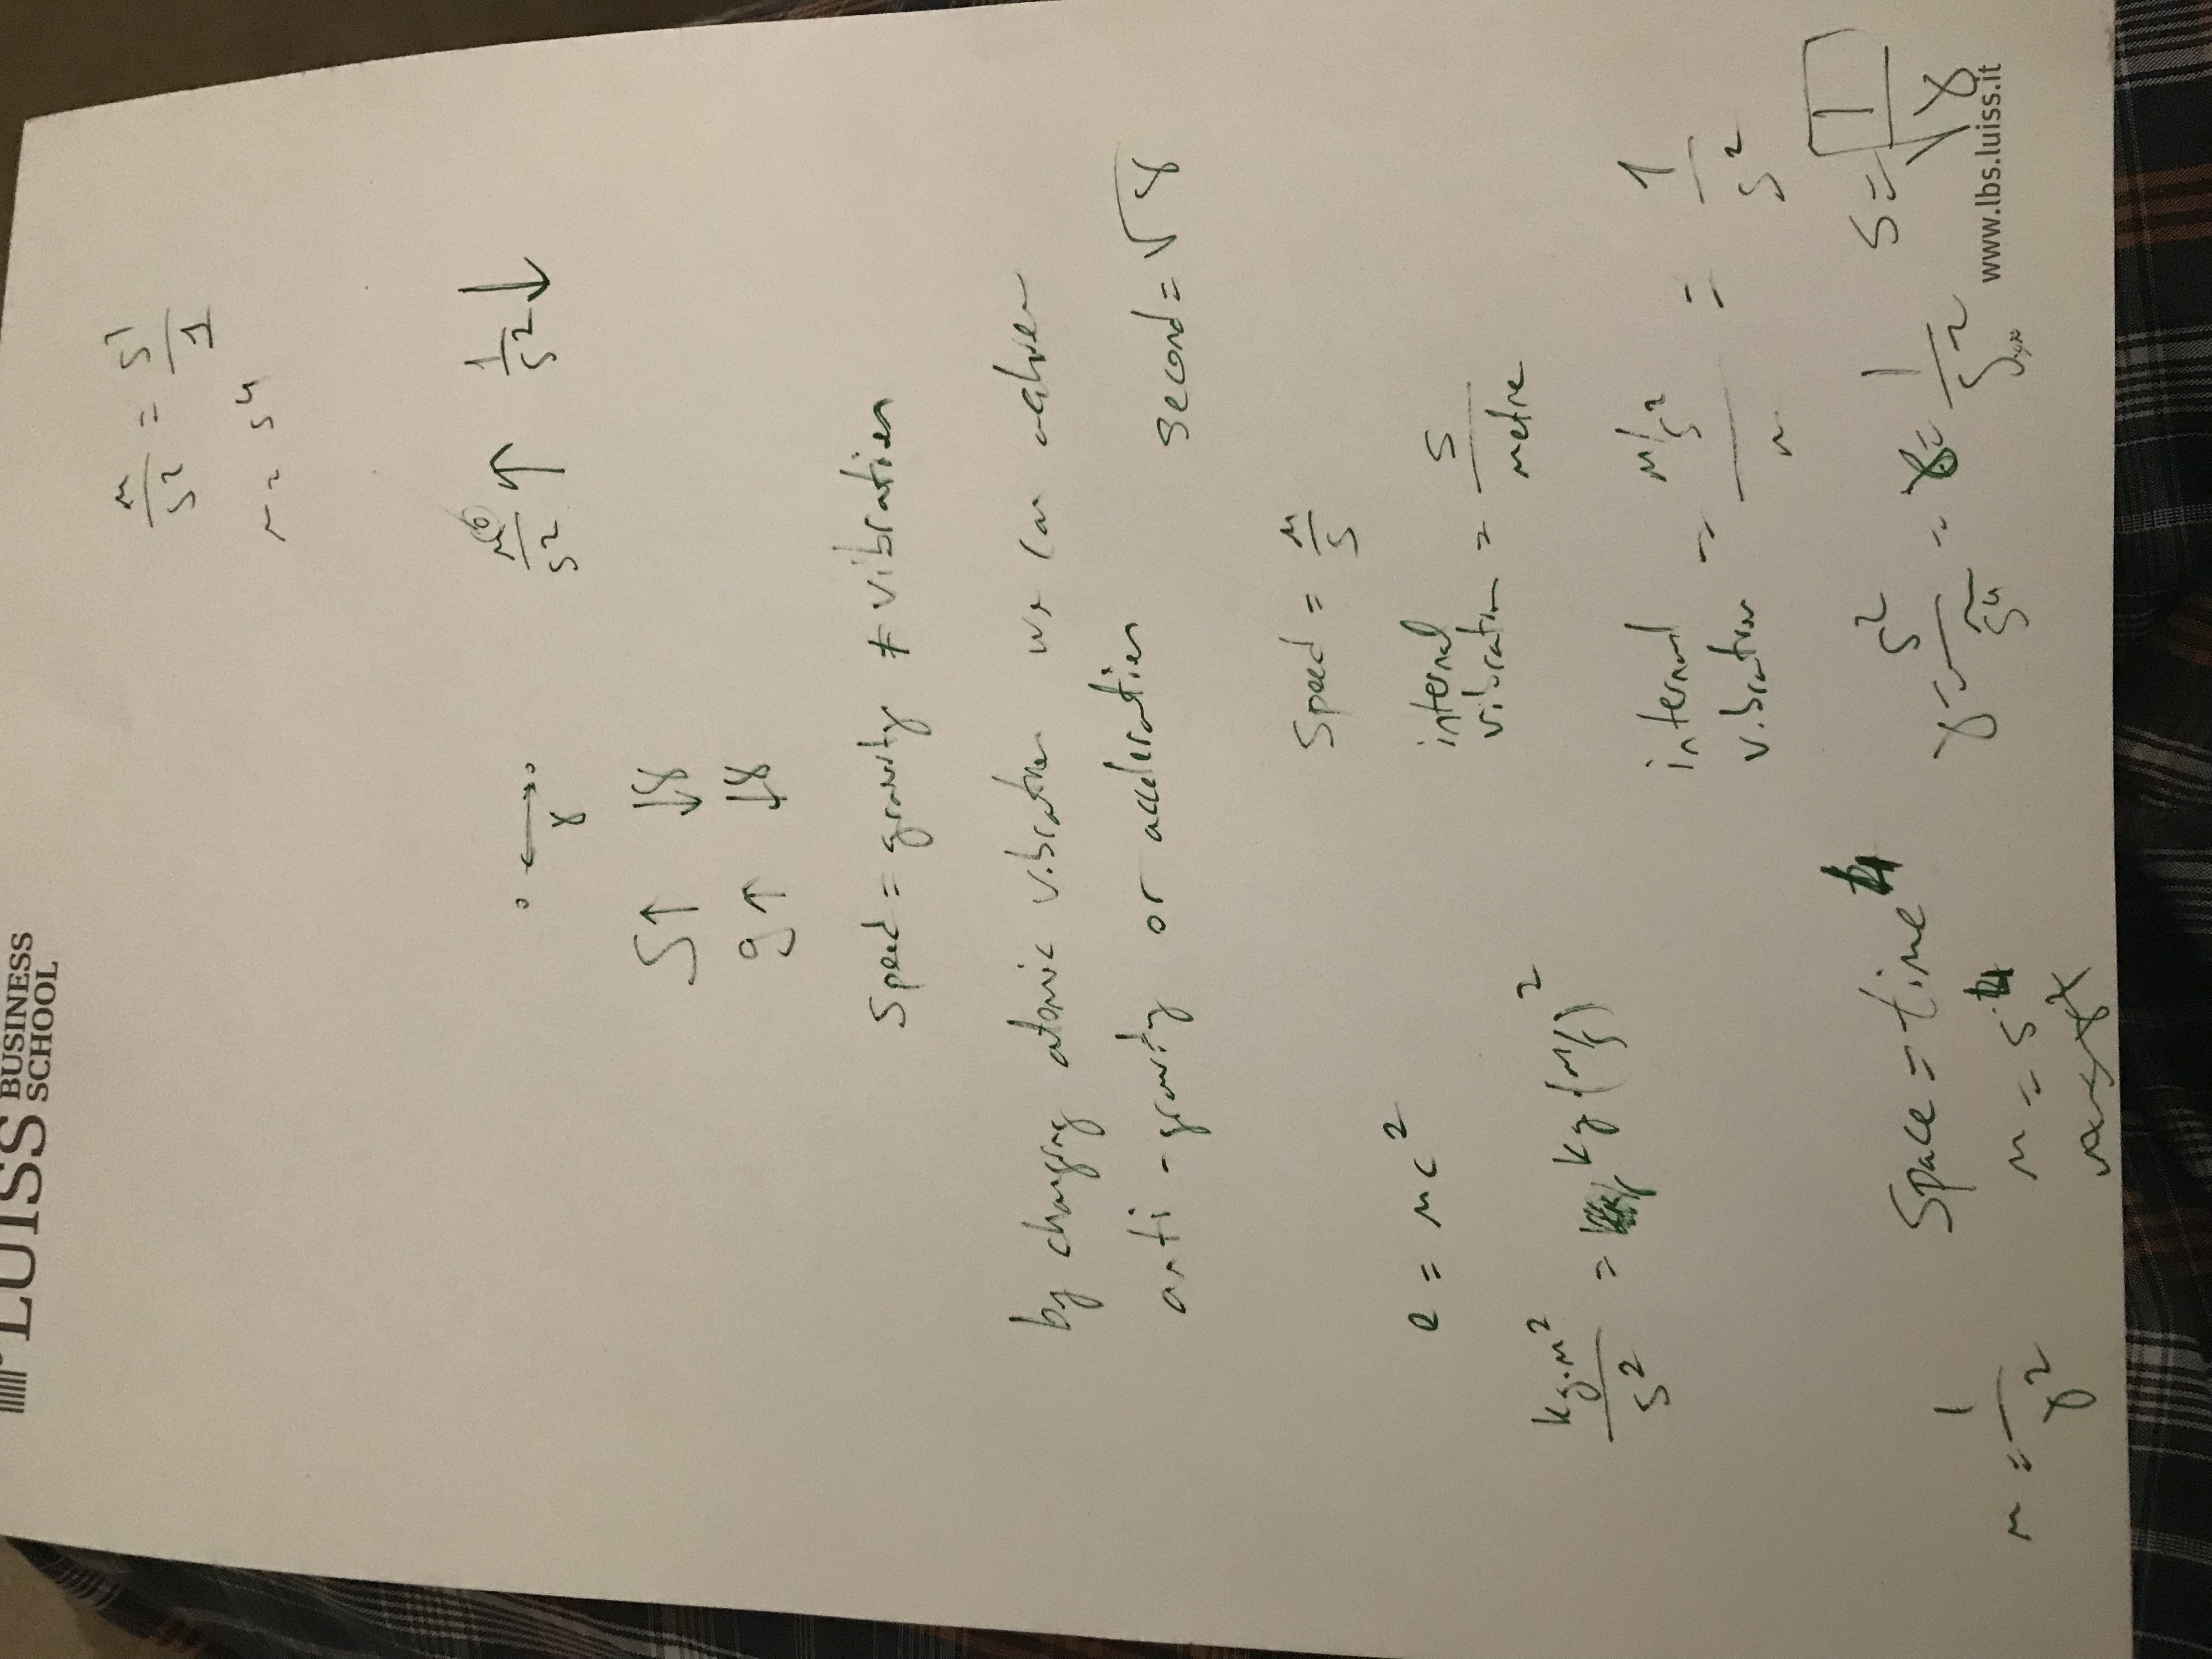 LUISS BUSINESS SCHOOL
m/s² = s²/1
m = s⁴
m/s² ↑ 1/s² ↓
γ
S↑ ↓γ
g↑ ↓γ
Speed = gravity ≠ vibration
by changing atomic vibration we can achieve
anti-gravity or acceleration
second = √γ
Speed = m/s
e = mc²
internal vibration = s/metre
kg.m²/s² = kg(m/s)²
internal vibration = m/s²/m = 1/s²
Space = time⁴
γ = s²/s⁴ = γ = 1/s²
s = 1/√γ
m = s⁴
m = 1/γ²
www.lbs.luiss.it